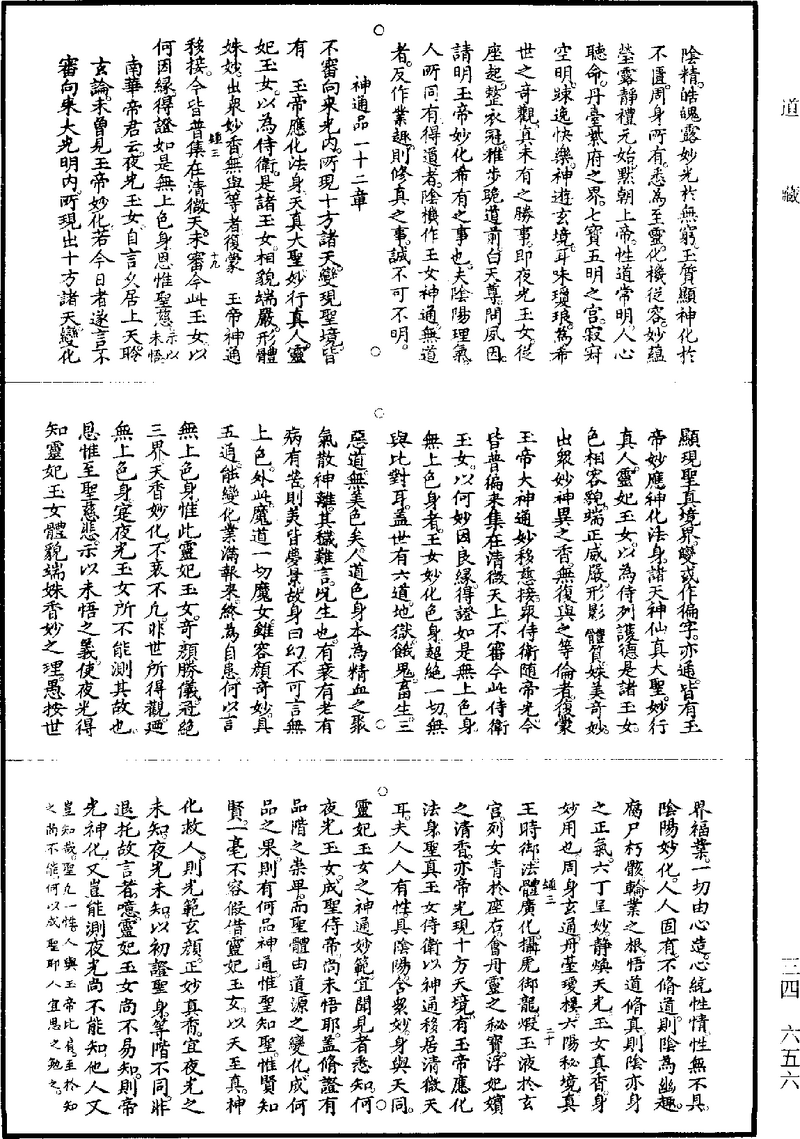 道藏
陰精。皓魄露妙光於無窮。玉質顯神化於
不匱。周身所有。悉為至靈。化機從容。妙蘊
瑩露。靜禮元始。默朝上帝。性道常明。人心
聽命。丹臺紫府之界。七寶五明之宮。寂寂
空明。踈逸快樂。神遊玄境。耳味瓊琅。為希
世之奇觀。真未有之勝事。即夜光玉女。從
座起。整衣冠。雅步跪道前。白天尊。問夙因。
請明玉帝妙化希有之事也。夫陰陽理氣。
人所同有。得道者。陰機作玉女神通。無道
者。反作業趣。則修真之事。誠不可不明。
神通品一十二章
不審向來光內。所現十方。諸天變現聖境。皆
有 玉帝應化法身。天真大聖妙行真人。靈
妃玉女。以為侍衛。是諸玉女。相貌端嚴。形體
姝妙。出眾妙香。無與等者。復蒙 玉帝神通
移接。今皆普集在清微天。未審今此玉女。以
何因緣得證如是無上色身。恩惟聖慈。示以未悟。
南華帝君云。夜光玉女。自言久居上天。聆
玄論。未曾見玉帝妙化。若今日者。遂言不
審向來大光明內。所現出十方諸天。變化
顯現聖真境界。變或作徧字。亦通。皆有玉
帝妙應神化法身。諸天神仙。真大聖。妙行
真人。靈妃玉女。以為侍列護德。是諸玉女。
色相容貌。端正威嚴。形影體質。姝美奇妙。
出眾妙神異之香。無復與之等倫者。復蒙
玉帝大神通妙移慈接。眾侍衛隨帝光。今
皆普徧來集在清微天上。不審今此侍衛
玉女。以何妙因良緣。得證如是無上色身。
無上色身者。玉女妙化色身。超絕一切。無
與比對耳。蓋世有六道。地獄餓鬼畜生。三
惡道。無美色矣。人道色身。本為精血之聚。
氣散神離。其穢難言。況生也。有衰有老有
病有苦。則美皆夢景。故身曰幻。不可言無
上色。外此魔道一切魔女。雖容顏奇妙。具
五通。能變化。業滿報來。終為自思。何以言
無上色身。惟此靈妃玉女。奇顏勝儀。冠絕
三界。天香妙化。不衰不凡。非世所得觀。迺
無上色身。寔夜光玉女所不能測其故也。
恩惟至聖慈悲。示以未悟之義。使夜光得
知靈妃玉女體貌端姝香妙之理。愚按世
界福業。一切由心造。心統性情。性無不具。
陰陽妙化。人人固有。不脩道。則陰為幽趣。
腐尸朽骸。輪業之根。悟道脩真。則陰亦身
之正氣。六丁呈妙。靜煥天光。玉女真香。身
妙用也。周身玄通。丹臺瓊樓。六陽秘境。真
王時御。法體廣化。攝虎御龍。煆玉液於玄
宮。列女青於座右。會丹靈之秘寶。浮妃嬪
之清香。亦帝光現十方天境。有玉帝應化
法身。聖真玉女侍衛。以神通移居清微天
耳。夫人人有性。具陰陽。含眾妙。身與天同。
靈妃玉女之神通妙範。宜聞見者悉知。何
夜光玉女。成聖侍帝。尚未悟耶。蓋脩證有
品階之崇卑。而聖體由道源之變化。成何
品之果。則有何品神通。惟聖知聖。惟賢知
賢。一毫不容假借。靈妃玉女。以天至真。神
化救人。則光範玄顏。正妙真香。宜夜光之
未知。夜光未知。以初證聖身。等階不同。非
退托故言者。噫。靈妃玉女尚不易知。則帝
光神化。又豈能測。夜光尚不能知。他人又
豈知哉。聖凡一性。人與玉帝比肩。至於知
之尚不能。何以成聖耶。人宜思之勉之。
號三 十九
號三 二十
三四 六五六